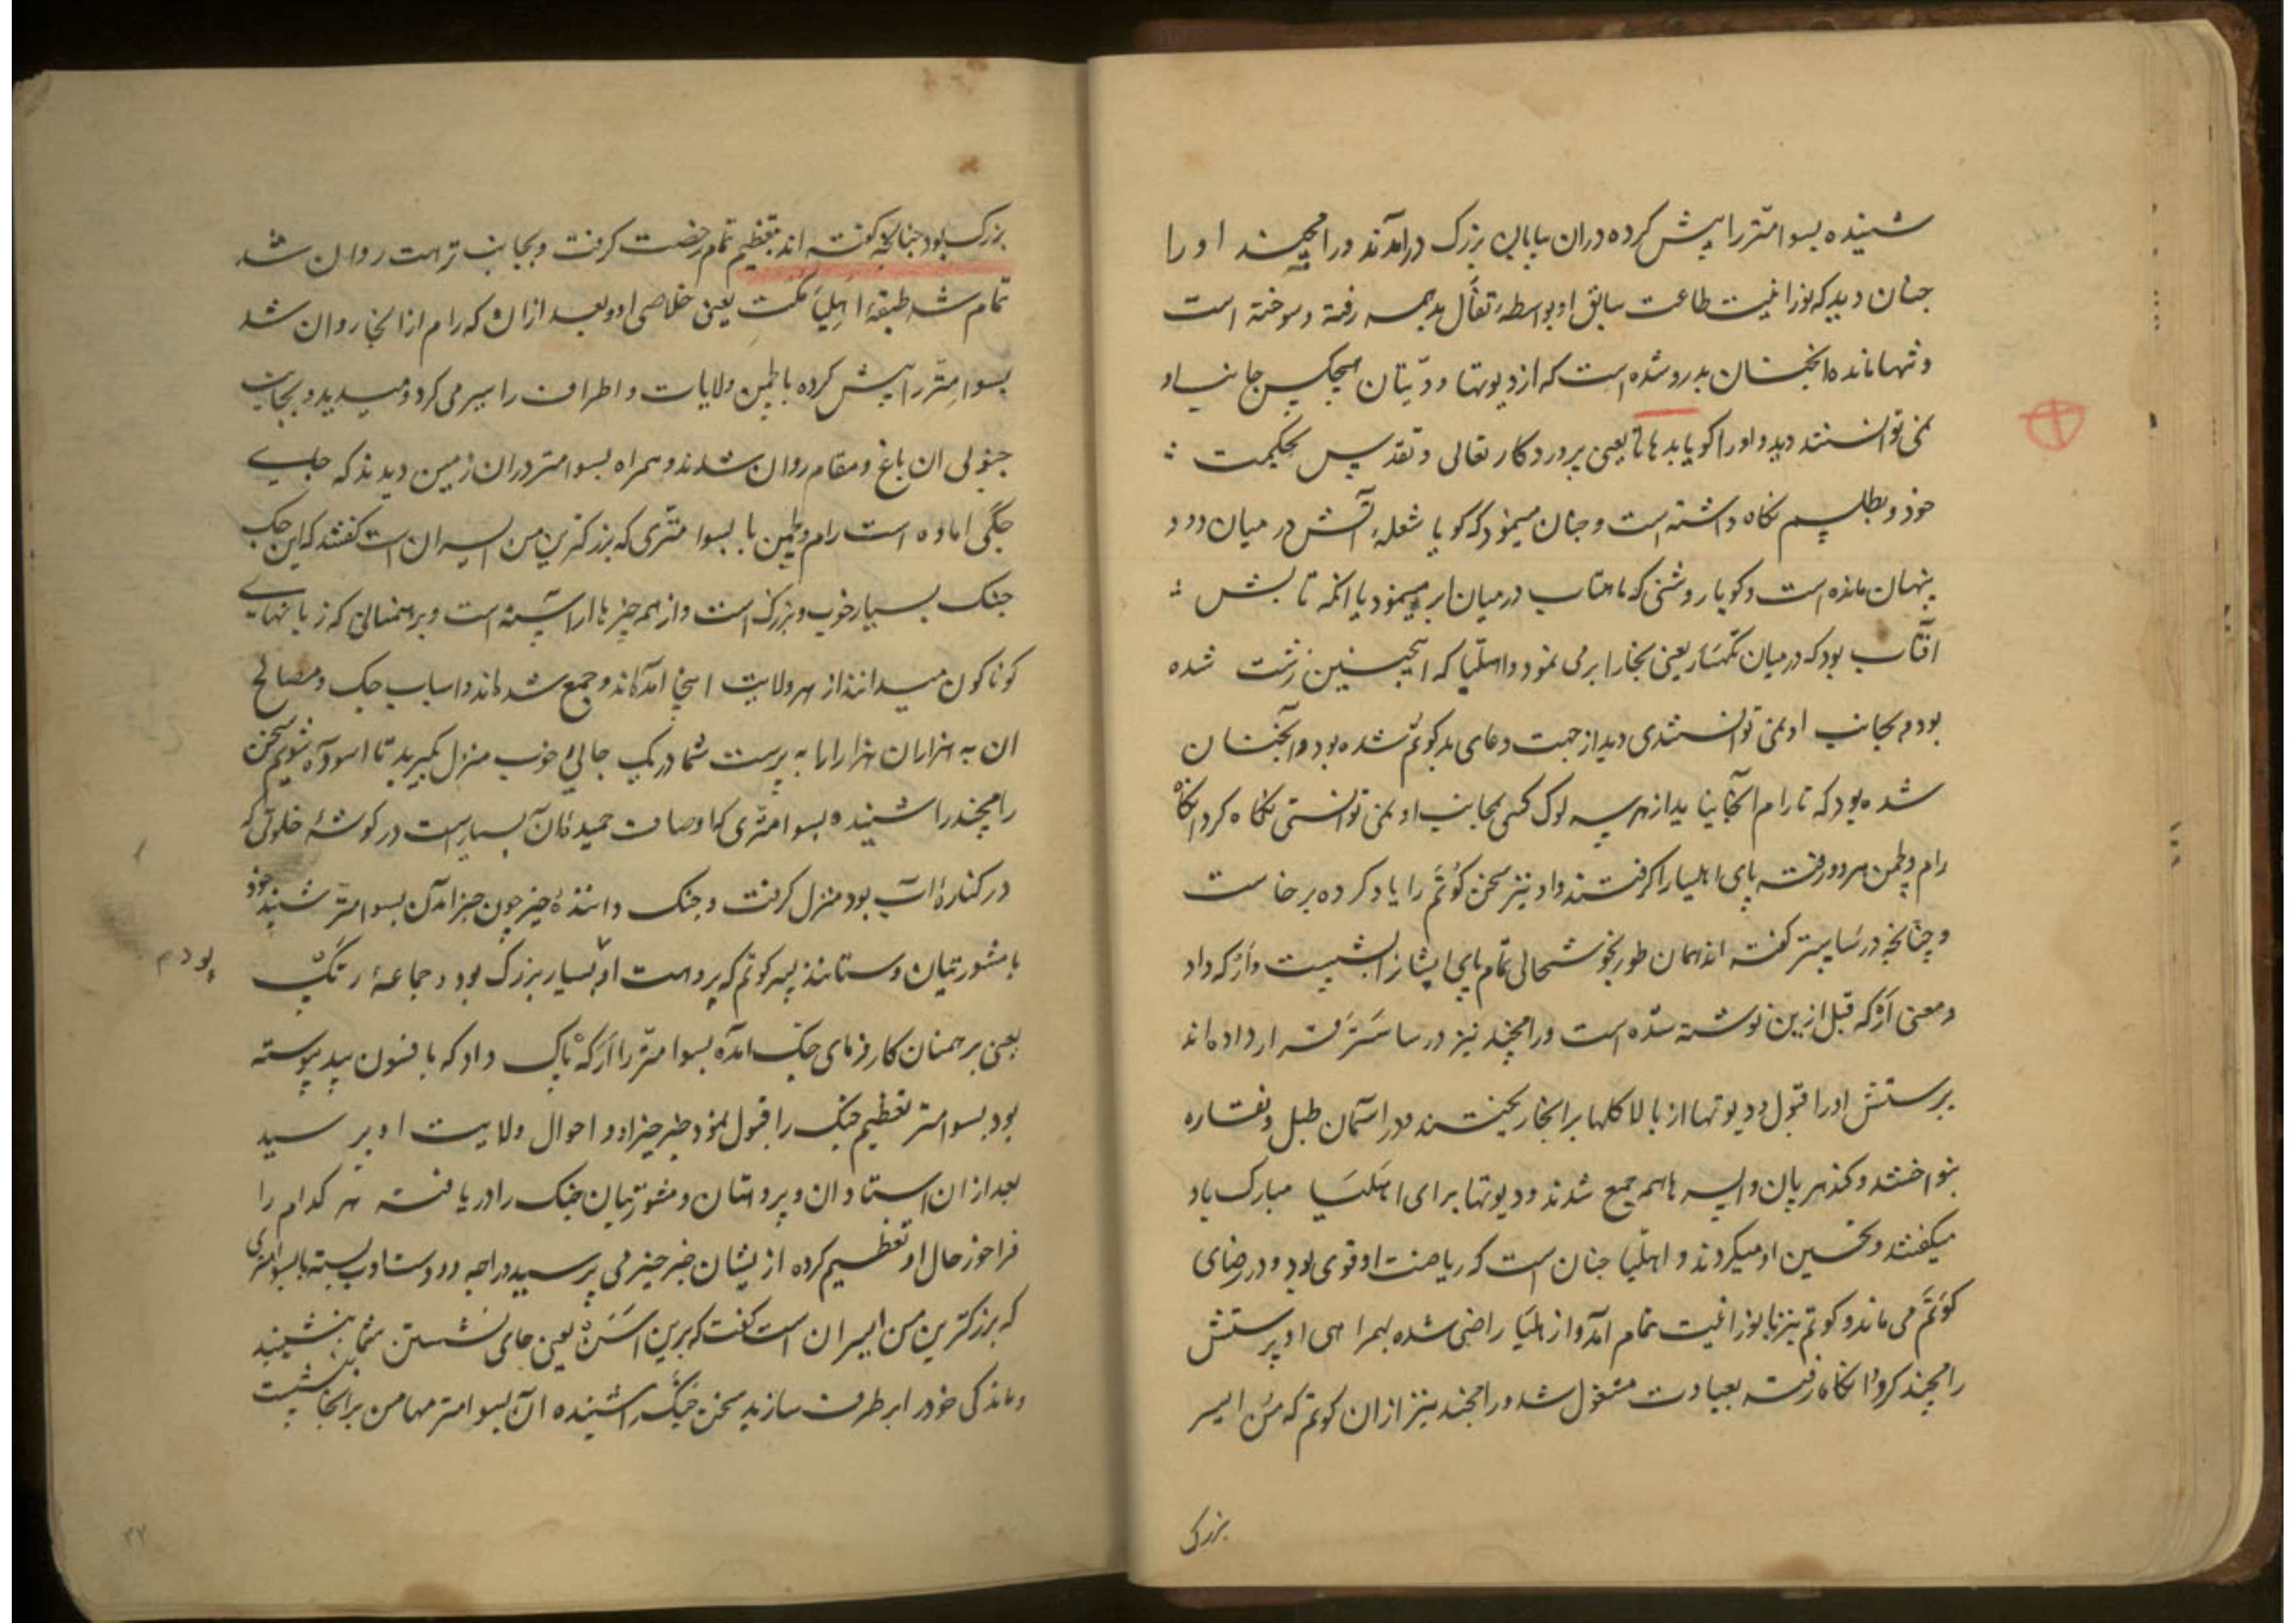 شنیده بسوامتر را پیش کرده دران بیابان بزرک درامدند و رامچند او را
جنان دید که نورانیت طاعت سابق او بواسطه تغال بد همه رفته و سوخته است
و تنها مانده انجنان بدرو شده است که از دیوتها و دیتان هیجکس جانب او
نمی توانستند دید و او را کویا بدهاتا یعنی پروردکار تعالی و تقدیس بحکمت
خود و بطلسم نکاه داشته است و جنان مینمود که کویا شعلهٔ آتش در میان دود
پنهان مانده است و کویا روشنی که ماهتاب در میان ابر مینمود یا انکه تابش
آفتاب بود که در میان یعنی بخارا بر می نمود و اهلیا که اینجنین زشت شده
بود و بجانب او نمی توانستندی دید از جهت دعای بد کوتم شده بود و آنجنان
شده بود که تا رام آنجا نیاید از هر سه لوک کسی بجانب او نمی توانستی نکاه کرد انکاه
رام و لچمن هر دو رفته پای اهلیا را کرفتند و او نیز سخن کوتم را یاد کرده برخاست
و چنانچه در ساستر کفته اند همان طور بخوشحالی تمام پای ایشانرا بشست و ارکه داد
و معنی ارکه قبل ازین نوشته شده است و رامچند نیز در ساستر قرار داده اند
پرستش او را قبول و دیوتها از بالا کلها بر انجا ریختند و در اسمان طبل و نقاره
بنواختند و کندهرپان و اپسرها همه جمع شدند و دیوتها برای اهلیا مبارک باد
میکفتند و تحسین او میکردند و اهلیا جنان است که ریاضت او قوی بود و در رضای
کوتم می ماند و کوتم نیز با نورانیت تمام آمد و از اهلیا راضی شده بهمراهی او پرستش
رامچند کرد و انکاه رفته بعبادت مشغول شد و رامچند نیز ازان کوتم که من ایسر
بزرک
بزرک بود جنانکه کفته اند بتعظیم تمام رخصت کرفت و بجانب ترهت روان شد
تمام شد طبقهٔ اهلیا مکت یعنی خلاصی او و بعد ازان که رام از انجا روان شد
بسوامتر را پیش کرده با لچمن ولایات و اطراف را سیر می کرد و میدید و بجانب
جنوبی ان باغ و مقام روان شدند و همراه بسوامتر دران زمین دیدند که جای
جکی اماده است رام و لچمن با بسوامتری که بزرکترین من ایسران است کفتند که این جک
جنک بسیار خوب و بزرک است و از همه چیزها اراسته است و برهمنانی که زبانهای
کوناکون میدانند از هر ولایت اینجا آمده اند و جمع شده اند و اسباب جک و مصالح
ان به هزاران هزار ارابه پرست شما در یک جائی خوب منزل بکیرید تا اسوده شویم سخن
رامچند را شنیده بسوامتری که اوصاف حمیدهٔ آن بسیارست در کوشهٔ خلوتی که
در کنارهٔ آب بود منزل کرفت و جنک دانندهٔ خیر چون خبر آمدن بسوامتر شنید خود
با مشورتیان و ستانند پسر کوتم که پروهت او بسیار بزرک بود و جماعهٔ رتک
بودم
یعنی برهمنان کارفرمای جک آمده بسوامتر را ارکه پاک داد که بافسون بید پیوسته
بود بسوامتر تعظیم جنک را قبول نمود و خبر خیر او و احوال ولایت او پرسید
بعد ازان استادان و پروهتان و مشورتیان جنک را دریافته هر کدام را
فراخور حال او تعظیم کرده از یشان خبر خیر می پرسید و راجه دو دست ادب بسته با بسوامتری
که بزرکترین من ایسران است کفت که برین آسن یعنی جای نشستن شما بنشینید
و ماندکی خود را برطرف سازید سخن جنک را شنیده آن بسوامتر مهامن بر انجا بنشست
۳۲